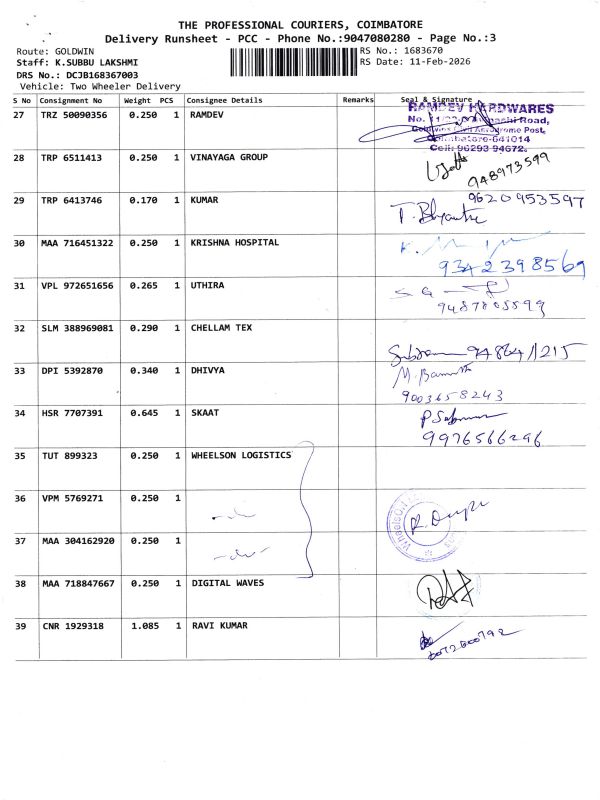 THE PROFESSIONAL COURIERS, COIMBATORE
Delivery Runsheet - PCC - Phone No.:9047080280 - Page No.:3
Route: GOLDWIN
RS No.: 1683670
Staff: K.SUBBU LAKSHMI
RS Date: 11-Feb-2026
DRS No.: DCJB168367003
Vehicle: Two Wheeler Delivery
S No Consignment No Weight PCS Consignee Details Remarks Seal & Signature
27 TRZ 50090356 0.250 1 RAMDEV
RAMDEV HARDWARES
Road,
Goldwins Civil Aerodrome Post,
Coimbatore-641014
Cell: 96293 94672.
28 TRP 6511413 0.250 1 VINAYAGA GROUP
948973599
29 TRP 6413746 0.170 1 KUMAR
9620953597
30 MAA 716451322 0.250 1 KRISHNA HOSPITAL
9342398569
31 VPL 972651656 0.265 1 UTHIRA
32 SLM 388969081 0.290 1 CHELLAM TEX
33 DPI 5392870 0.340 1 DHIVYA
9003658243
34 HSR 7707391 0.645 1 SKAAT
9976566296
35 TUT 899323 0.250 1 WHEELSON LOGISTICS
36 VPM 5769271 0.250 1
37 MAA 304162920 0.250 1
38 MAA 718847667 0.250 1 DIGITAL WAVES
39 CNR 1929318 1.085 1 RAVI KUMAR